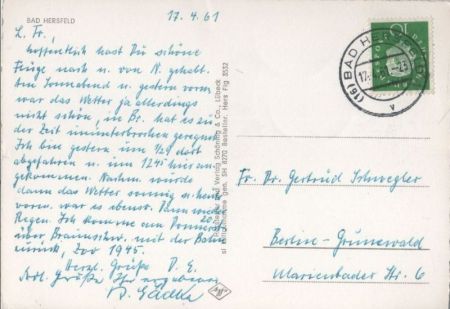 BAD HERSFELD
17.4.61
L. Fr.,
hoffentlich hast Du schöne
Flüge nach u. von N. gehabt.
Am Sonnabend u. gestern vorm.
war das Wetter ja allerdings
nicht schön, in Br. hat es zu
der Zeit ununterbrochen geregnet.
Ich bin gestern um 1/29 dort
abgefahren u. um 1245 hier an-
gekommen. Nachm. wurde
dann das Wetter sonnig u. heute
vorm. war es ebenso. Dann wieder
Regen. Ich komme am Donnerst. 20.
über Braunschw. mit der Bahn
zurück, Zoo 1945.
Herzl. Grüße D. E.
Herzl. Grüße Ihr ergebener
Verlag Schöning & Co., Lübeck
gen. SH 8270 Bestellnr. Hers Fig 3532
(16) BAD HERSFELD
17.
Fr. Dr. Gertrud Schwegler
Berlin-Grunewald
Marienbader Str. 6